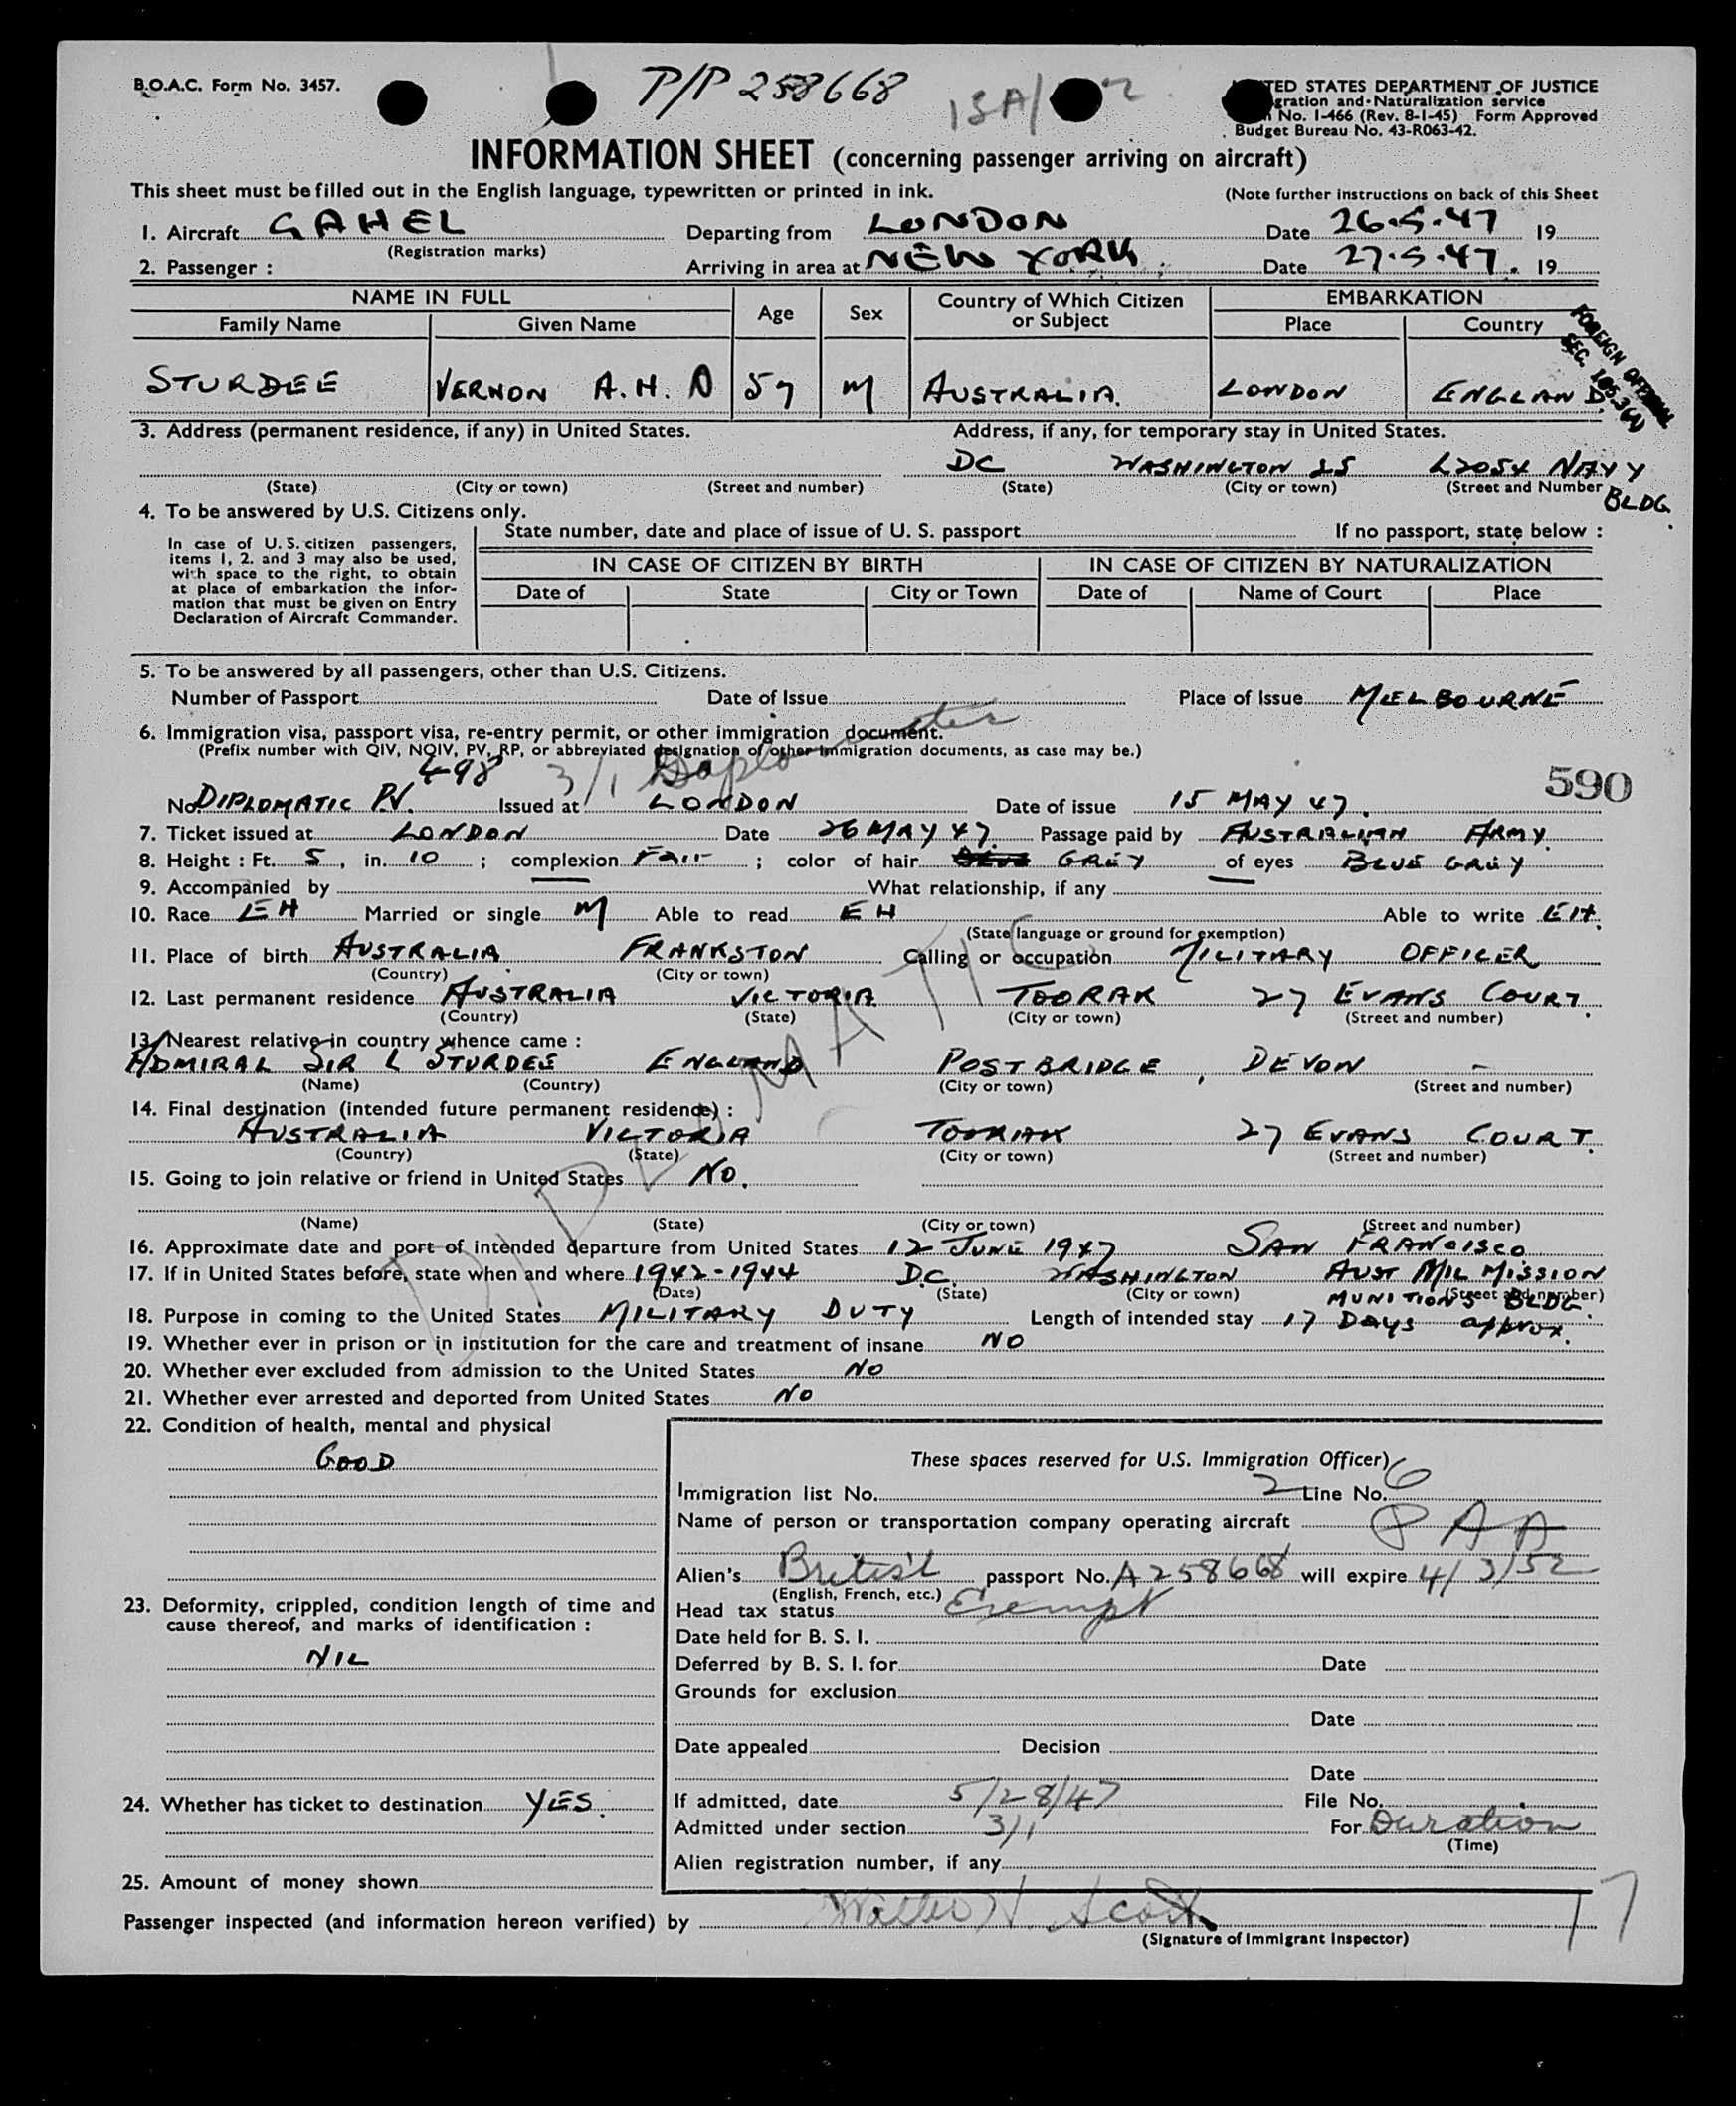 B.O.A.C. Form No. 3457.
P/P 258668
UNITED STATES DEPARTMENT OF JUSTICE
gration and Naturalization service
No. I-466 (Rev. 8-I-45) Form Approved
Budget Bureau No. 43-R063-42.
INFORMATION SHEET (concerning passenger arriving on aircraft)
This sheet must be filled out in the English language, typewritten or printed in ink. (Note further instructions on back of this Sheet
1. Aircraft GAHEL Departing from LONDON Date 26.5.47 19
(Registration marks)
2. Passenger : Arriving in area at NEW YORK Date 27.5.47. 19
NAME IN FULL Age Sex Country of Which Citizen or Subject EMBARKATION
Family Name Given Name Place Country
FOREIGN OFFICIAL
SEC.
STURDEE VERNON A.H. 57 M AUSTRALIA. LONDON ENGLAND.
3. Address (permanent residence, if any) in United States. Address, if any, for temporary stay in United States.
DC WASHINGTON 25 NAVY BLDG.
(State) (City or town) (Street and number) (State) (City or town) (Street and Number
4. To be answered by U.S. Citizens only.
In case of U.S. citizen passengers, items 1, 2. and 3 may also be used, with space to the right, to obtain at place of embarkation the information that must be given on Entry Declaration of Aircraft Commander.
State number, date and place of issue of U. S. passport If no passport, state below :
IN CASE OF CITIZEN BY BIRTH IN CASE OF CITIZEN BY NATURALIZATION
Date of State City or Town Date of Name of Court Place
5. To be answered by all passengers, other than U.S. Citizens.
Number of Passport Date of Issue Place of Issue MELBOURNE
6. Immigration visa, passport visa, re-entry permit, or other immigration document.
(Prefix number with QIV, NQIV, PV, RP, or abbreviated designation of other immigration documents, as case may be.)
498 3/1 590
No. DIPLOMATIC P.V. Issued at LONDON Date of issue 15 MAY 47.
7. Ticket issued at LONDON Date 26 MAY 47 Passage paid by AUSTRALIAN ARMY.
8. Height : Ft. 5, in. 10 ; complexion FAIR ; color of hair GREY of eyes BLUE GREY
9. Accompanied by What relationship, if any
10. Race EH Married or single M Able to read EH Able to write EH.
(State language or ground for exemption)
11. Place of birth AUSTRALIA FRANKSTON Calling or occupation MILITARY OFFICER
(Country) (City or town)
12. Last permanent residence AUSTRALIA VICTORIA TOORAK 27 EVANS COURT.
(Country) (State) (City or town) (Street and number)
13. Nearest relative in country whence came :
ADMIRAL SIR L STURDEE ENGLAND POSTBRIDGE, DEVON -
(Name) (Country) (City or town) (Street and number)
14. Final destination (intended future permanent residence) :
AUSTRALIA VICTORIA TOORAK 27 EVANS COURT.
(Country) (State) (City or town) (Street and number)
15. Going to join relative or friend in United States NO.
(Name) (State) (City or town) (Street and number)
16. Approximate date and port of intended departure from United States 12 JUNE 1947 SAN FRANCISCO
17. If in United States before, state when and where 1942-1944 D.C. WASHINGTON AUST MIL MISSION
(Date) (State) (City or town) (Street and number)
MUNITIONS BLDG
18. Purpose in coming to the United States MILITARY DUTY Length of intended stay 17 DAYS approx.
19. Whether ever in prison or in institution for the care and treatment of insane NO
20. Whether ever excluded from admission to the United States NO
21. Whether ever arrested and deported from United States NO
DIPLOMATIC
22. Condition of health, mental and physical
GOOD
These spaces reserved for U.S. Immigration Officer)
Immigration list No. 2 Line No. 6
Name of person or transportation company operating aircraft PAA
Alien's British passport No. A258668 will expire 4/3/52
(English, French, etc.)
23. Deformity, crippled, condition length of time and cause thereof, and marks of identification :
NIL
Head tax status Exempt
Date held for B. S. I.
Deferred by B. S. I. for Date
Grounds for exclusion
Date
Date appealed Decision
Date
24. Whether has ticket to destination YES.
If admitted, date 5/28/47 File No.
Admitted under section 3/1 For Duration
(Time)
Alien registration number, if any
25. Amount of money shown
Passenger inspected (and information hereon verified) by Walter H. Scott 17
(Signature of Immigrant Inspector)